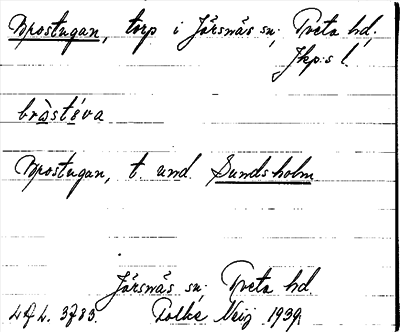 Brostugan, torp i Järsnäs sn; Tveta hd,
Jkp:s l.
bròstéva
Brostugan, t. und. Sundsholm
Järsnäs sn; Tveta hd.
Folke Neij 1939.